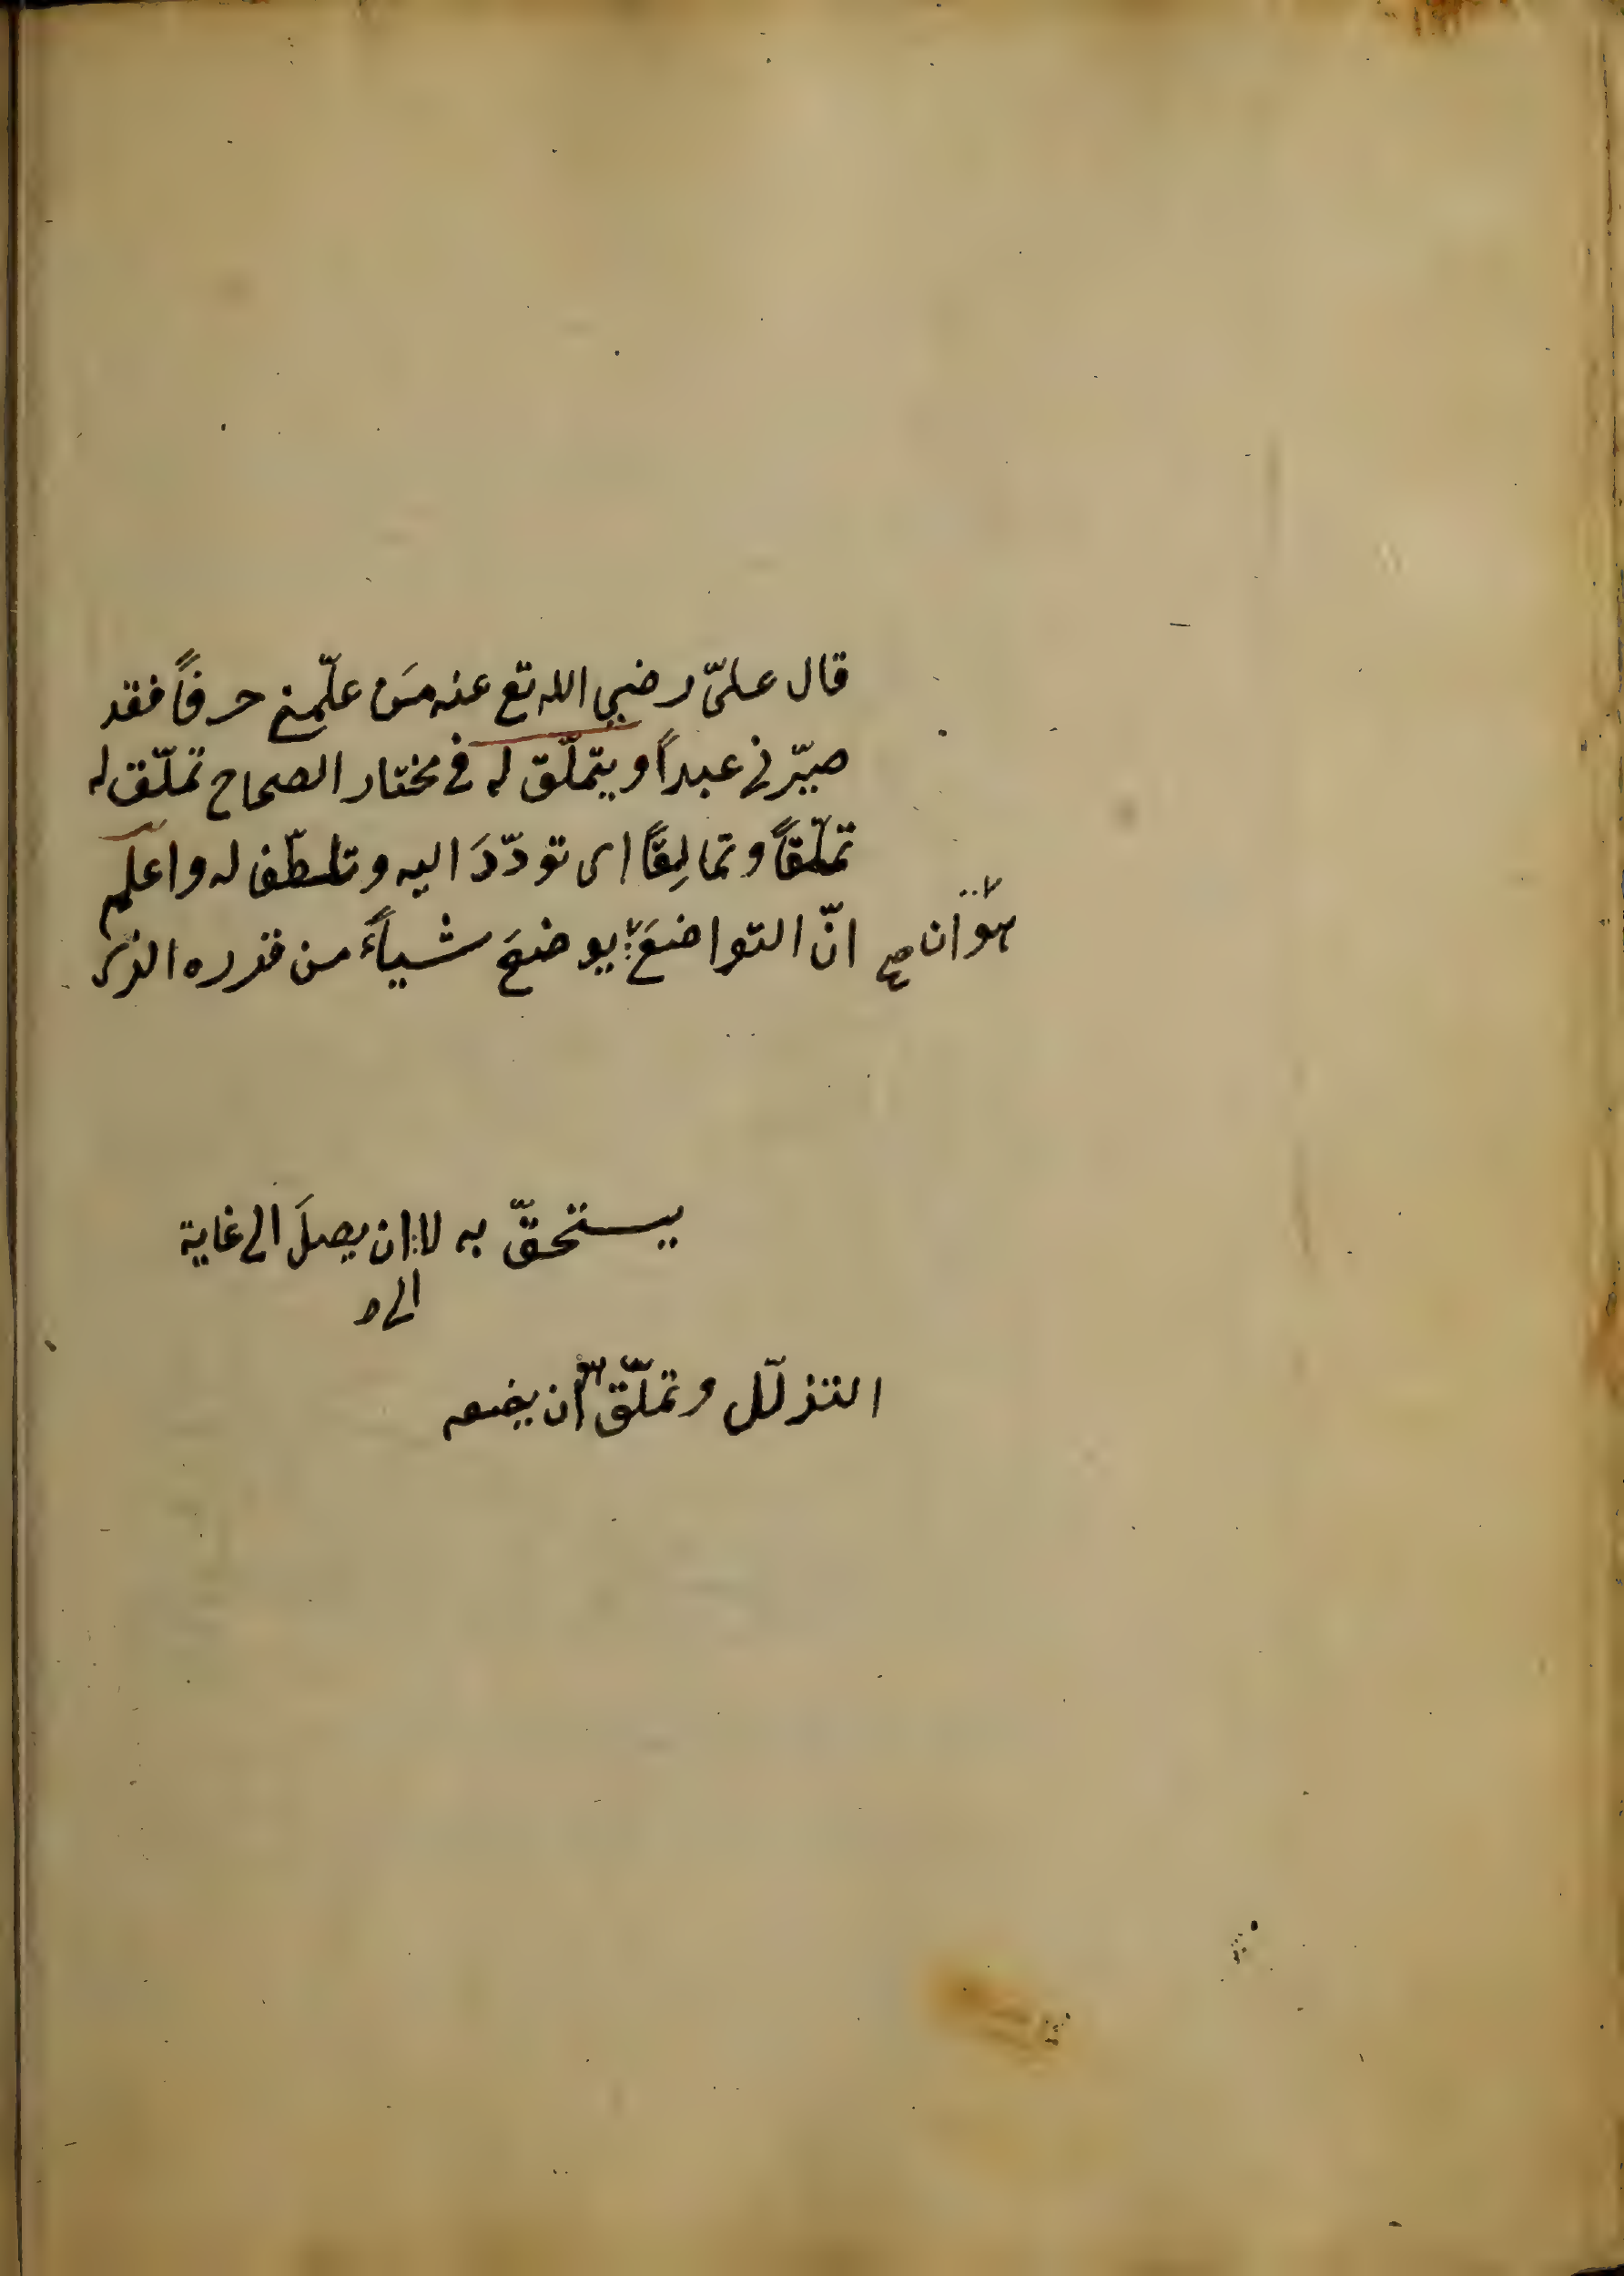 قال علىّ رضي الله تع عنه مَن علّمني حرفاً فقد
صيّرني عبداً ويتملّق له في مختار الصحاح تملّق له
تملّقاً وتمالِقاً اى تودّدَ اليه وتلطّف له واعلم
انّ التواضعَ يوضعَ شيأً من قدره الذى
هو ان صح
يستحقّ به لا ان يصلَ الى غاية
الى
التذلّل وتملّق ان يضعه